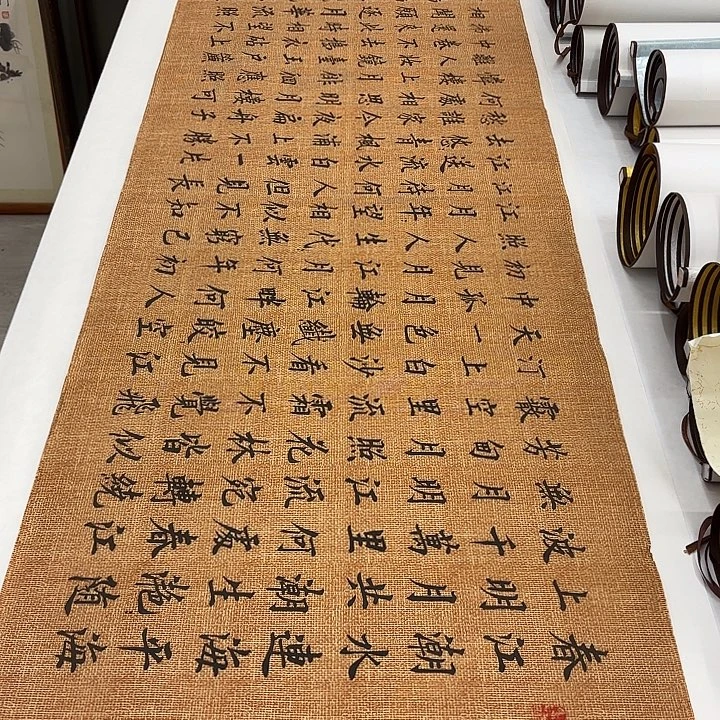 春江潮水連海平海
上明月共潮生灩隨
波千萬里何處春江
無月明江流宛轉繞
芳甸月照花林皆似
霰空里流霜不覺飛
汀上白沙看不見江
天一色無纖塵皎空
中孤月輪江畔何人
初見月江月何年初
照人人生代無窮已
江月年望相似不知
江月待何人但見長
江送流水白雲一片
去悠青楓浦上不勝
愁誰家今夜扁舟子
何處相思明月樓可
憐樓上月徘徊應照
離人妝鏡臺玉戶簾
中卷不去擣衣砧上